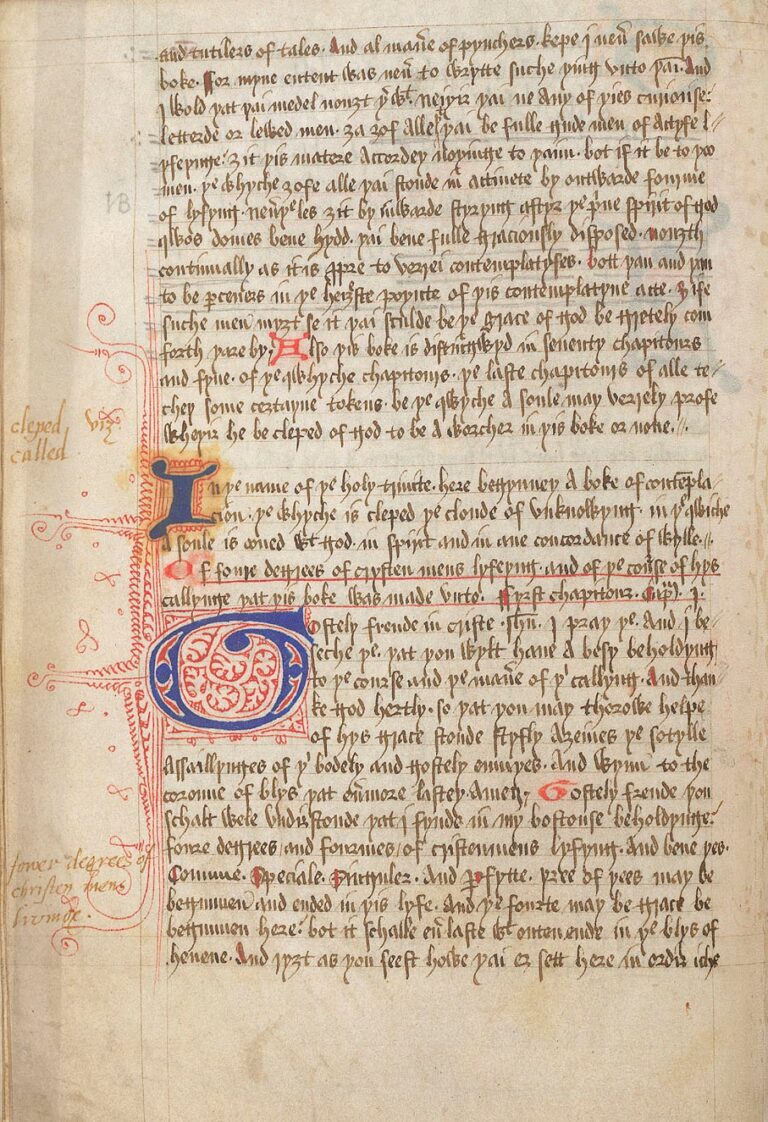 and tutilers of tales. And al man̄e of pynchers. kepe j nen̄ sawe þis
boke. For myne entent was nen̄ to wrytte suche þing vnto þai. And
j wold þat þai medel nouȝt þ wt. neiþir þai ne any of þies curiouse
letterde or lewed men. ȝa ȝof alle þai be fulle gude men of actyfe l
yfeynge. ȝit þis matere accordeþ noþinge to þaim. bot if it be to þoo
men. þe whyche ȝofe alle þai stonde in actiuete by outwarde fourme
of lyfyng. nen̄þeles ȝit by inwarde styryng aftyr þe p̄ue spirit of god
qwos domes bene hydd. þai bene fulle graciously disposed. nouȝth
continually as it is ꝓpre to verrei contemplatyfes. bott þan and þan
to be ꝑceners in þe heiȝste poyncte of þis contemplatyue acte. ȝife
suche men myȝt se it þai sculde be þe grace of god be gretely com
forth þare by. Also þis boke is distingwyd in seuenty chapitours
and fyue. of þe qwhyche chapitours. þe laste chapitours of alle te
cheþ some certayne tokens. be þe qwyche a soule may verrely profe
wheþir he be cleped of god to be a worcher in þis boke or none.
cleped viz
called
In þe name of þe holy trinite. here begynneþ a boke of contēpla
cion. þe whyche is cleped þe cloude of vnknowyng. in þe qwiche
a soule is oned wt god. in spirit and in ane concordance of wylle.
Of foure degrees of crysten mens lyfeyng. and of þe course of hys
callynge þat þis boke was made vnto. Fyrst chapitour. Cap̄. j.
Gostely frende in criste Ihu. I pray þe. And I be
seche þe. þat þou wylt haue a besy beholdyng
to þe course and þe man̄e of þi callyng. And than
ke god hertly. so þat þou may thorowe helpe
of hys grace stonde styfly aȝeines þe sotylle
assaillynges of þi bodely and gostely enmyes. And wynn to the
coroune of blys þat en̄more lasteþ. Amen. Gostely frende þou
schalt wele vndirstonde þat j fynde in my bostouse beholdynge
foure degrees and fourmes of cristenmens lyfyng. And bene þes.
Comune. Speciale. Singuler. And ꝑfytte. þre of þees may be
begunnen and ended in þis lyfe. And þe fourte may be grace be
begunnen here. bot it schalle en̄ laste wt outen ende in þe blys of
heuene. And ryȝt as þou seest howe þai er sett here in ordir iche
fower degrees of
christen mens
livinge.
18